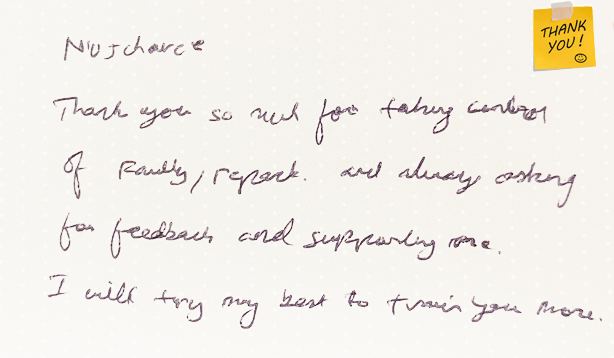 THANK
YOU!
Thank you so much for taking control
of faulty, repack. and always asking
for feedback and supporting me.
I will try my best to train you more.